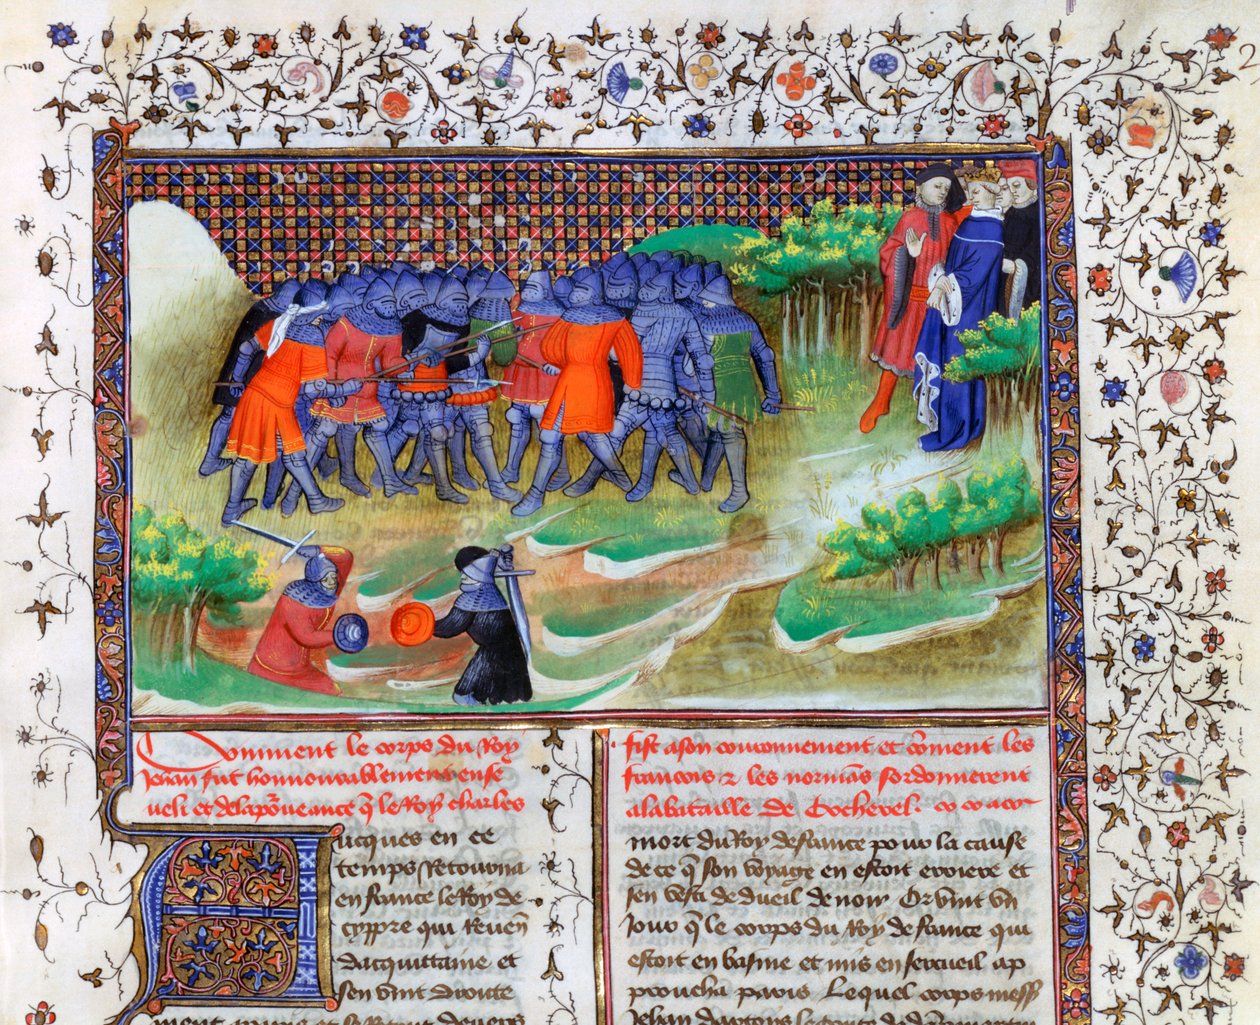 Comment le corps du Roy
Jehan fut honnourablement ense
ueli et de la pourueance q̃ le Roy charles
fist a son couronnement et cõment les
francois & les normãs sordonnerent
a la bataille de Cocherel.
Aucques en ce
temps sretourna
en france le Roy de
cyppre qui Reuenoit
dacquittaine et
sen vint droitte
mort du Roy de france po&#x27;ur la cause
de ce q̃ son voyage en estoit et
sen vesti de dueil de noir Or vint vn
Jour q̃ le corps du Roy de france qui
estoit en basme et mis en sercueil ap
proucha paris Lequel corps mess
Jehan dartois le conte de